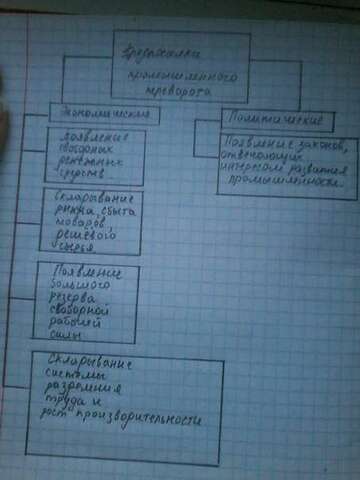 Предпосылки
промышленного
переворота
Экономические
Политические
Появление
свободных
денежных
средств
Появление законов,
отвечающих
интересом развития
промышленности.
Складывание
рынка, сбыта
товаров,
дешёвого
сырья
Появление
большого
резерва
свободной
рабочей
силы
Складывание
системы
разделения
труда и
рост производительности